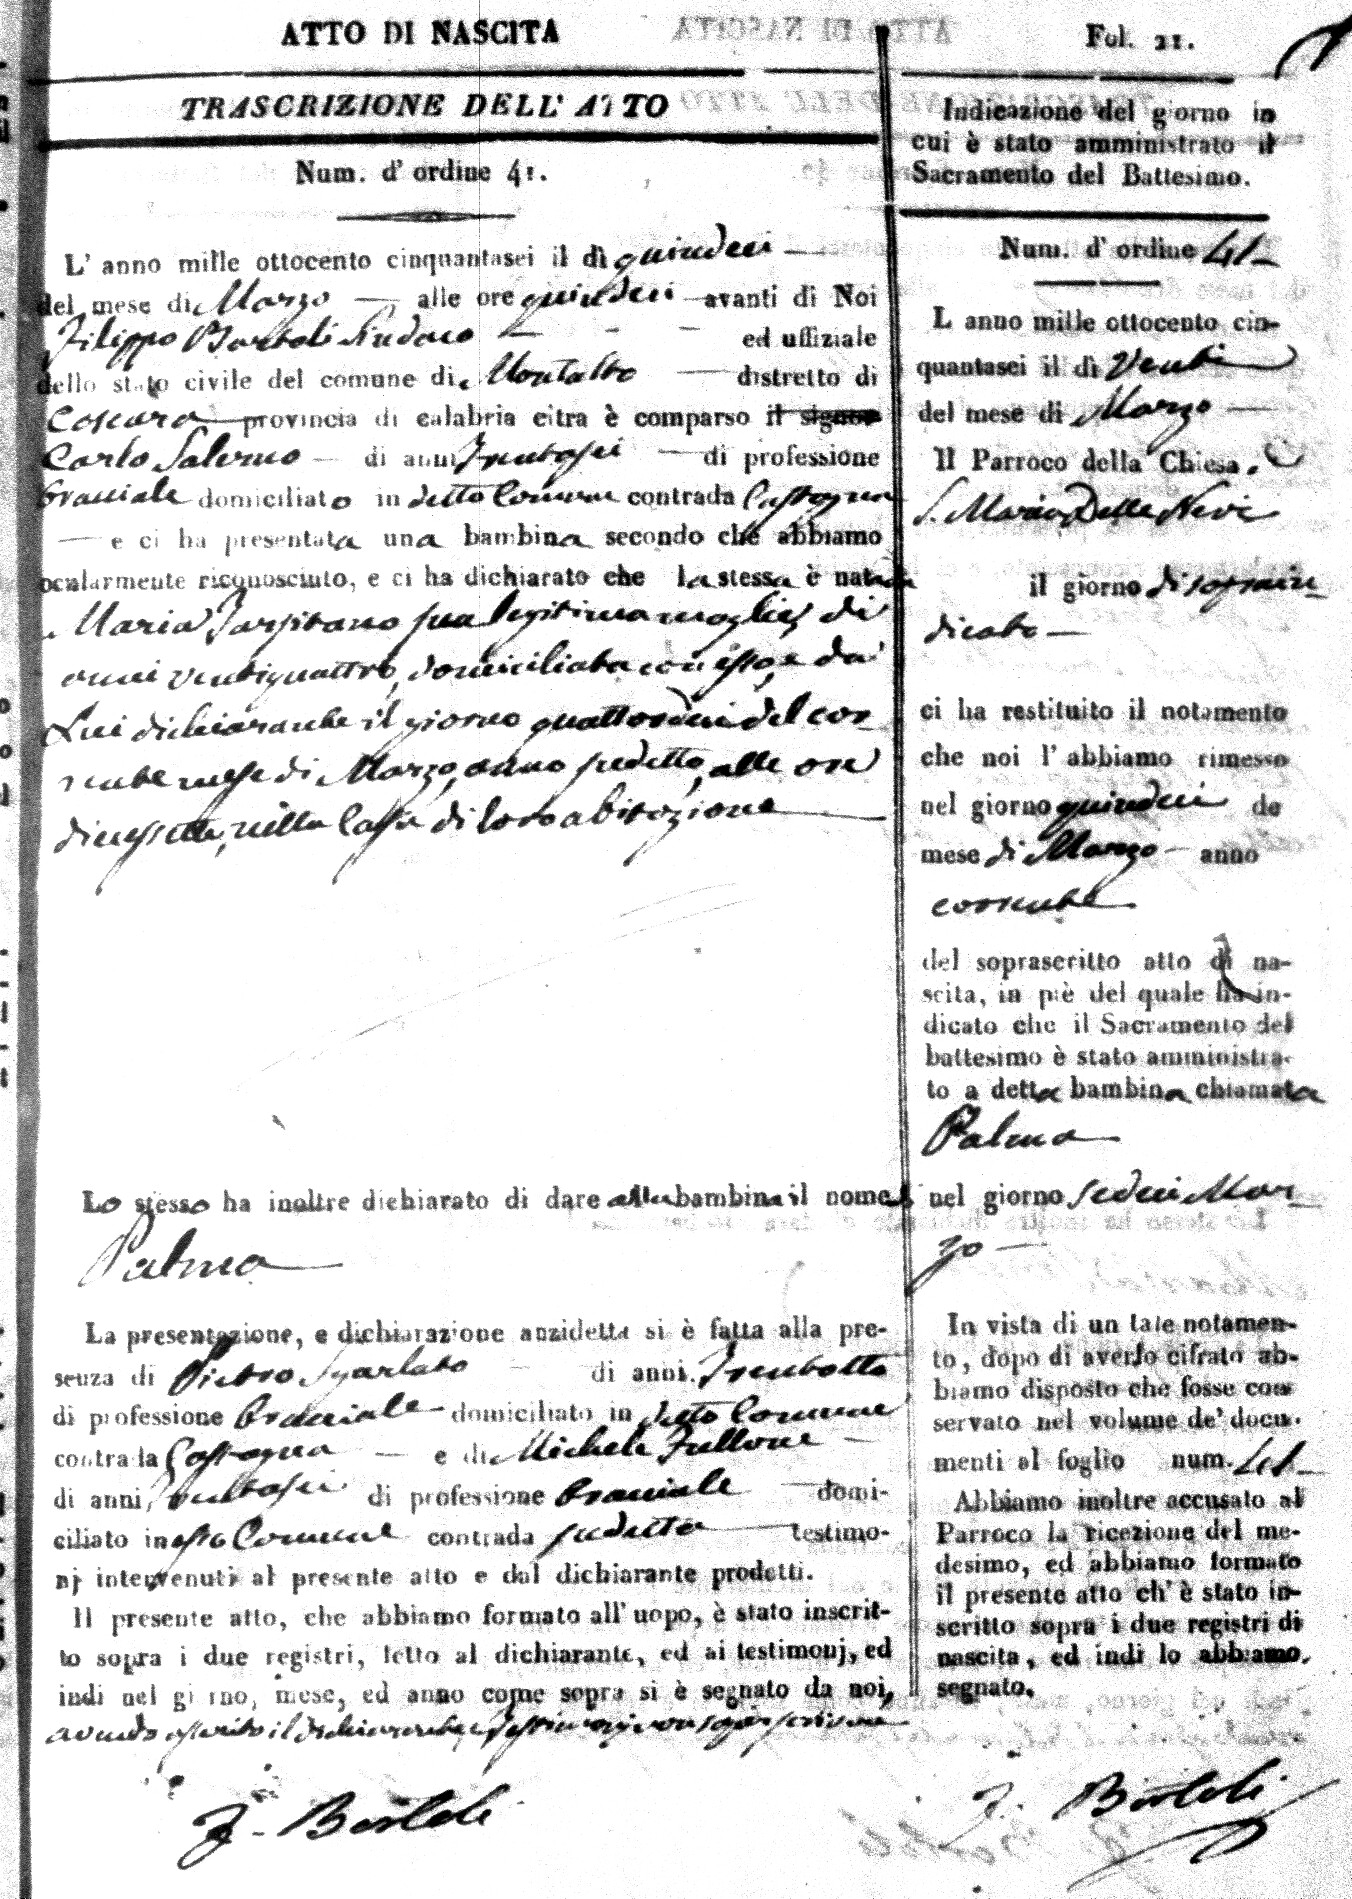 ATTO DI NASCITA
TRASCRIZIONE DELL' ATTO
Num. d' ordine 41.
L' anno mille ottocento cinquantasei il dì quindeci
del mese di Marzo alle ore quindeci avanti di Noi
Filippo Bartoli Sindaco ed uffiziale
dello stato civile del comune di Montalto distretto di
Cosenza provincia di calabria citra è comparso il signor
Carlo Salerno di anni Trentasei di professione
bracciale domiciliato in detto Comune contrada Castagna
e ci ha presentata una bambina secondo che abbiamo
ocularmente riconosciuto, e ci ha dichiarato che la stessa è nata da
Maria Tarsitano sua legitima moglie, di
anni ventiquattro, domiciliata con esso, e da
Lui dichiarante il giorno quattordeci del cor-
rente mese di Marzo, anno sudetto, alle ore
diecissette, nella Casa di loro abitazione
Lo stesso ha inoltre dichiarato di dare alla bambina il nome di
Palma
La presentazione, e dichiarazione anzidetta si è fatta alla pre-
senza di Pietro Sgarlato di anni Trentotto
di professione bracciale domiciliato in detto Comune
contrada Castagna e di Michele Fullone
di anni Trentasei di professione bracciale domi-
ciliato in esso Comune contrada sudetta testimo-
nj intervenuti al presente atto e dal dichiarante prodotti.
Il presente atto, che abbiamo formato all' uopo, è stato inscrit-
to sopra i due registri, letto al dichiarante, ed ai testimonj, ed
indi nel giorno, mese, ed anno come sopra si è segnato da noi,
avendo asserito il dichiarante e testimonj non saper scrivere
F. Bartoli
Fol. 21.
Indicazione del giorno in
cui è stato amministrato il
Sacramento del Battesimo.
Num. d' ordine 41
L anno mille ottocento cin-
quantasei il dì Venti
del mese di Marzo
Il Parroco della Chiesa.
S. Maria Della Neve
il giorno di sopra in-
dicato
ci ha restituito il notamento
che noi l' abbiamo rimesso
nel giorno quindeci de
mese di Marzo anno
corrente
del soprascritto atto di na-
scita, in piè del quale ha in-
dicato che il Sacramento del
battesimo è stato amministra-
to a detta bambina chiamata
Palma
nel giorno sedeci Mar-
zo
In vista di un tale notamen-
to, dopo di averlo cifrato ab-
biamo disposto che fosse con
servato nel volume de' docu-
menti al foglio num. 41
Abbiamo inoltre accusato al
Parroco la ricezione del me-
desimo, ed abbiamo formato
il presente atto ch' è stato in-
scritto sopra i due registri di
nascita, ed indi lo abbiamo
segnato.
F. Bartoli